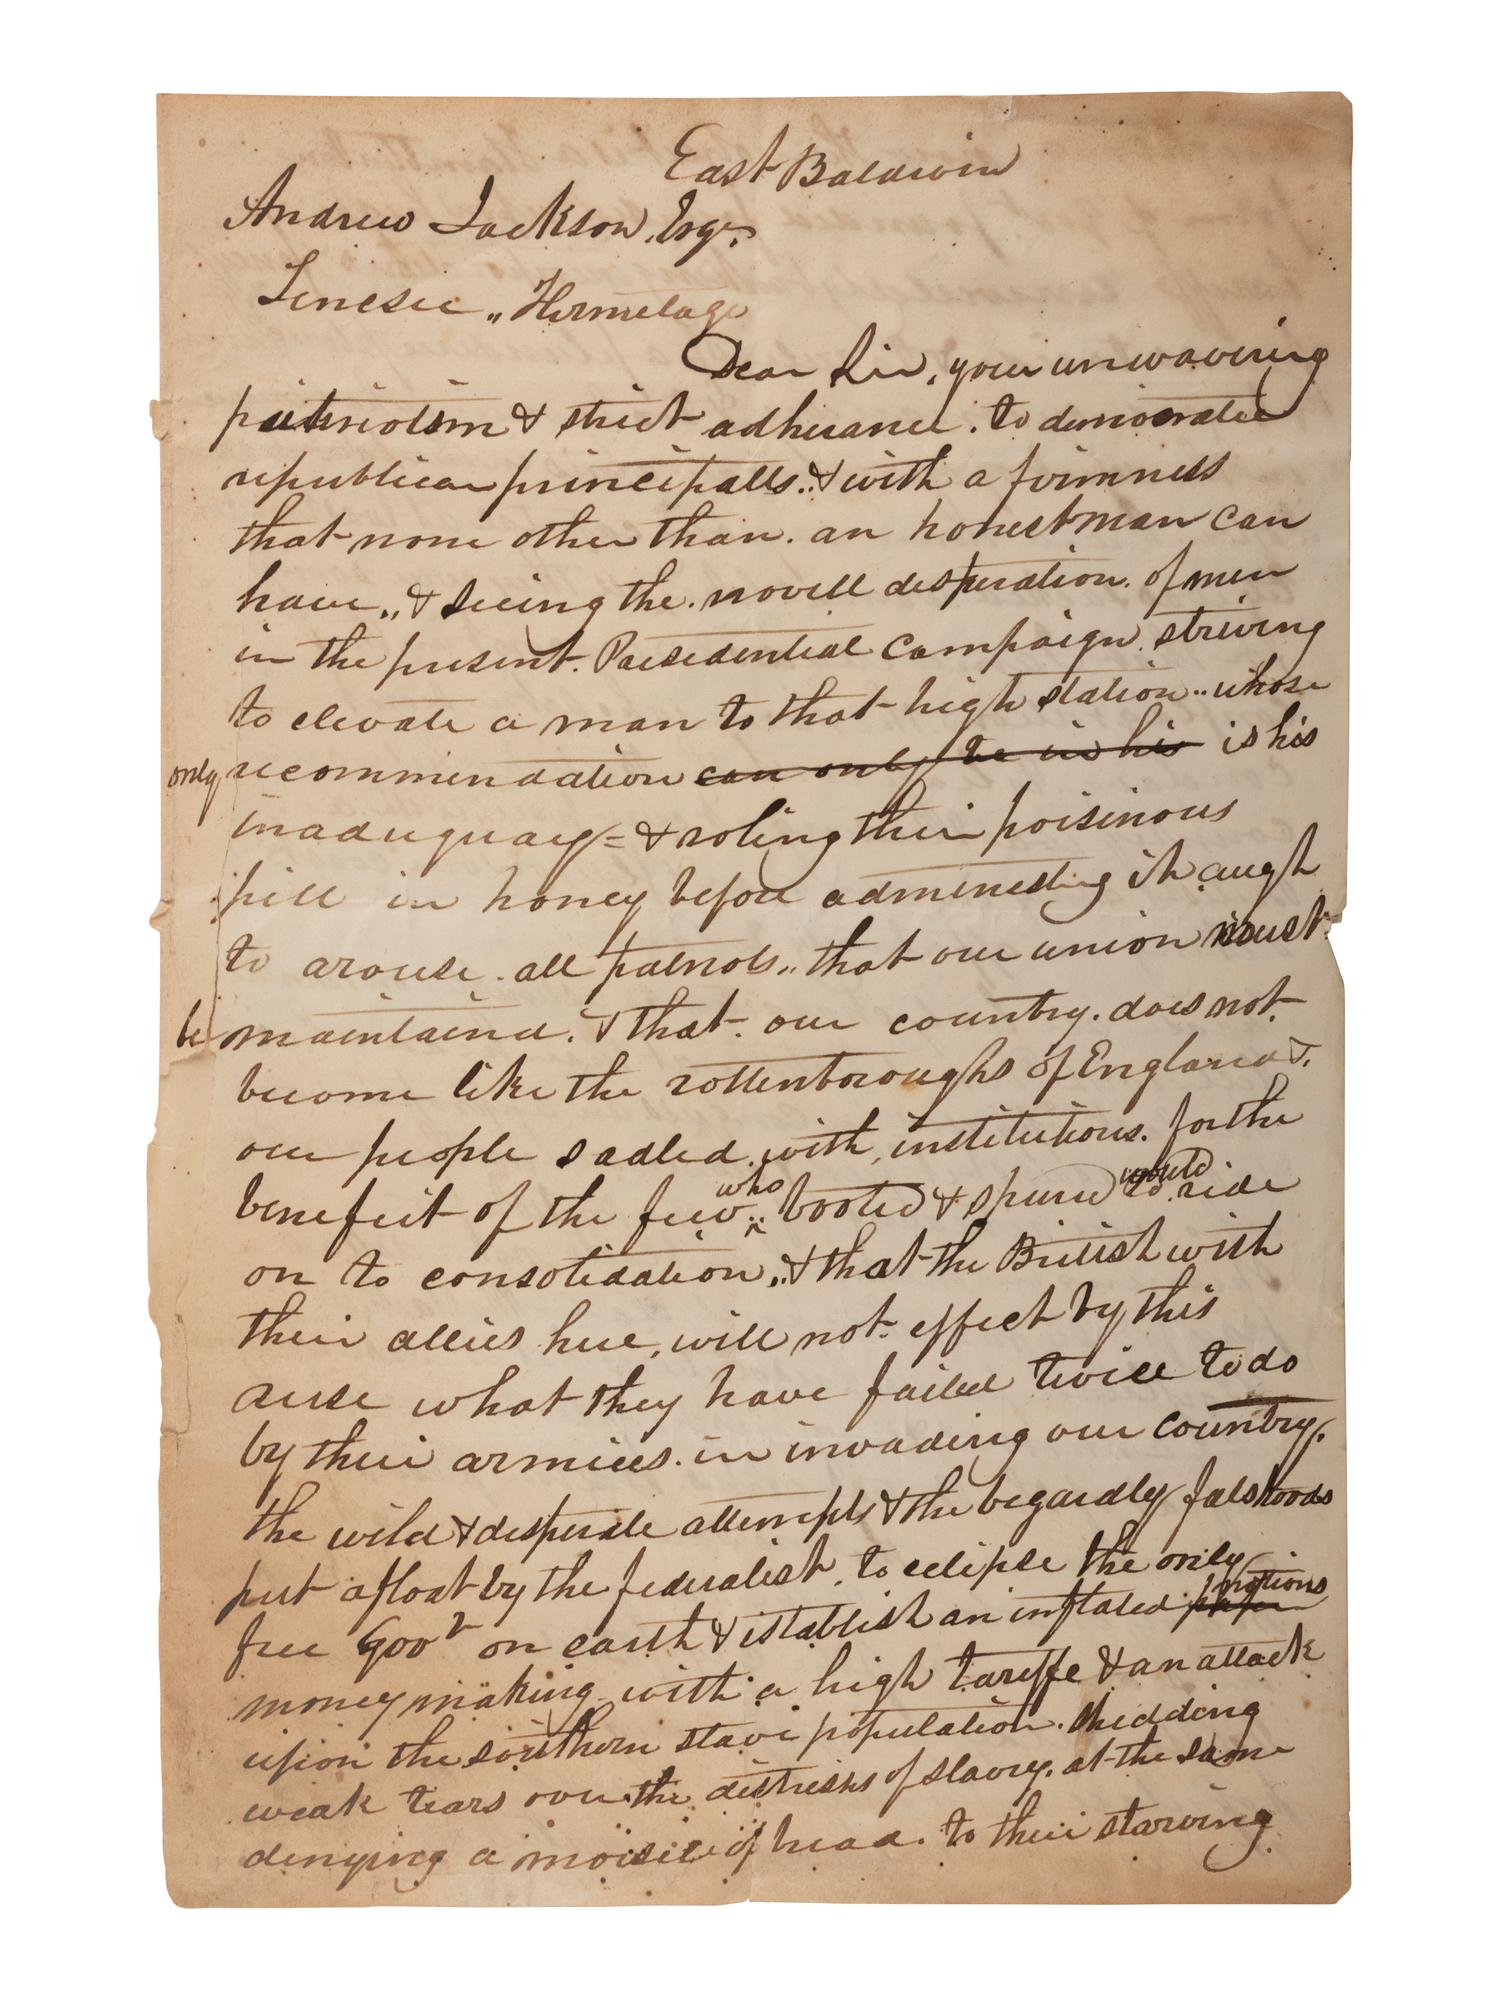 East Baldwin
Andrew Jackson, Esqr.
Tenesee „ Hermetage
Dear Sir, your unwavering
patriotism & strict adherance. to democratic
republican principalls.. & with a firmness
that none other than. an honest man can
have„ & seeing the. novell desperation. of men
in the present. Presedential campaign. striving
to elevate a man to that high station.. whose
only recommendation can only be in his is his
inaduquacy = & roling their poisinous
pill in honey before admenesting it. augh
to arouse. all patriots„ that our union must
be maintaind. & that. our country. does not.
become like the rottenboroughs of England &.
our people sadled. with, institutions. for the
benefeit of the few.. who booted & spured to would ride
on to consolidation„ & that the British with
their allies here, will not effect by this
ruse what they have failed twice to do
by their armies. in invading our country.
the wild & desperate attempts & the begardly falshoods
put afloat by the federalist. to eclipse the only
free Govt on earth & establish an inflated paper notions
money making with a high tareffe & an attack
upon the southern slave population. shedding
weak tears over the distresses of slavery. at the same
denying a moisel of bread. to their starving